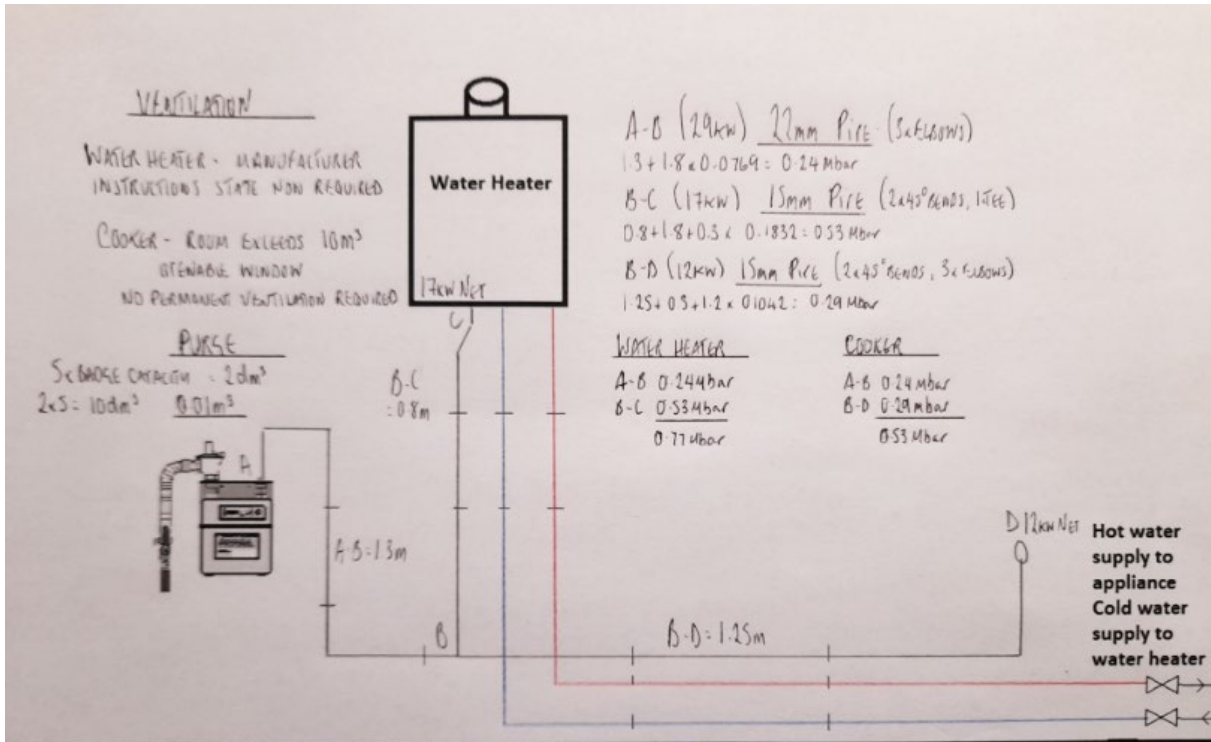 VENTILATION
WATER HEATER - MANUFACTURER
INSTRUCTIONS STATE NON REQUIRED
COOKER - ROOM EXCEEDS 10m³
OPENABLE WINDOW
NO PERMANENT VENTILATION REQUIRED
PURGE
5x BADGE CAPACITY = 2dm³
2x5 = 10dm³ 0.01m³
Water Heater
17KW NET
A-B (29KW) 22mm PIPE (3xELBOWS)
1.3+1.8x0.0769= 0.24Mbar
B-C (17KW) 15mm PIPE (2x45°BENDS, 1TEE)
0.8+1.8+0.3x 0.1832= 0.53 Mbar
B-D (12KW) 15mm PIPE (2x45°BENDS, 3xELBOWS)
1.25+0.3+1.2x 0.1042= 0.29 Mbar
WATER HEATER
A-B 0.24Mbar
B-C 0.53Mbar
0.77Mbar
COOKER
A-B 0.24 Mbar
B-D 0.29mbar
0.53 Mbar
C
B-C
=0.8m
A
A-B=1.3m
B
B-D=1.25m
D 12KW NET
Hot water
supply to
appliance
Cold water
supply to
water heater